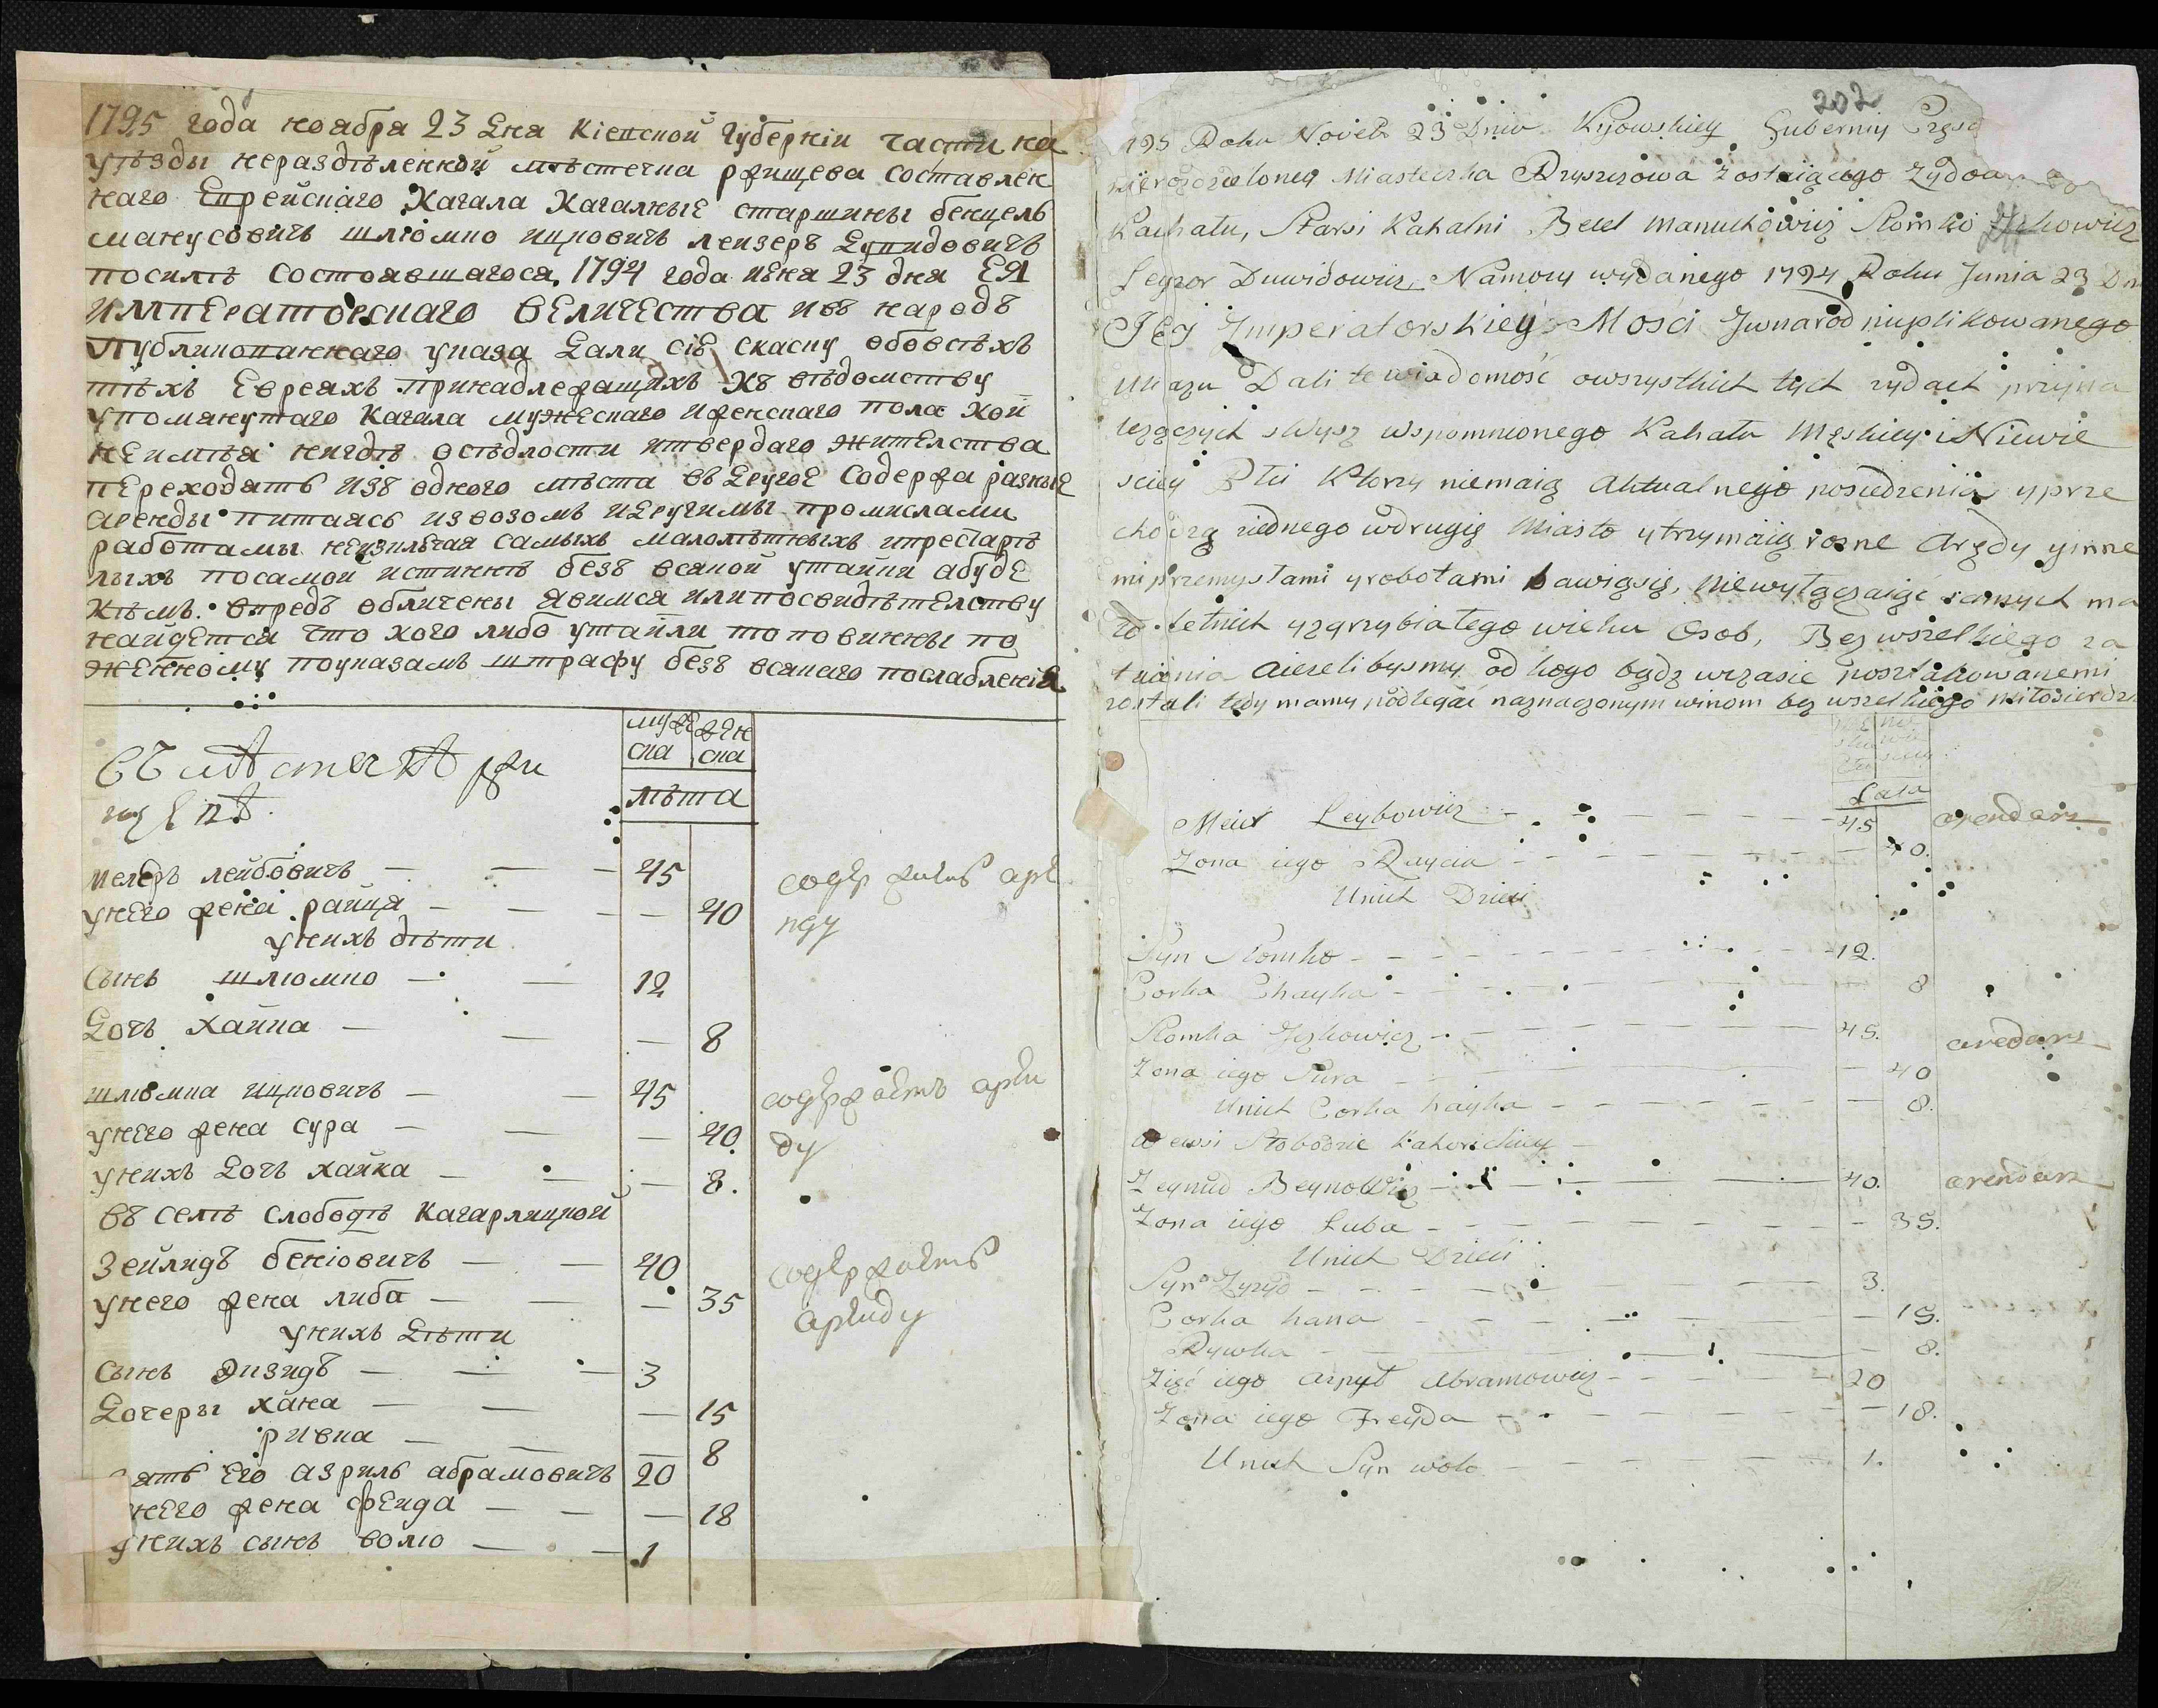 1795 года ноабра 23 дна Кіевской Губерніи части на
уѣзды нераздѣленной мѣстечка ржищева составлен
наго Еврейскаго Кагала Кагалные старшины бенцель
манусовичъ шлюмко ицковичъ леизеръ Дувидовичъ
посилѣ состоявшагося 1794 года июна 23 дна ЕЯ
ИМПЕРАТОРСКАГО ВЕЛИЧЕСТВА ивъ народъ
публикованнаго указа дали сіе скаску обовсѣхъ
тѣхъ Евреяхъ принадлежащихъ къ вѣдомству
упоманутаго кагала мужескаго иженскаго пола кои
неимѣя нигдѣ осѣдлости итвердаго жителства
переходятъ изъ одного мѣста въ другое содержа разные
аренды питаясь извозомъ идругимы промислами
работамы неизилючая самыхъ малолѣтныхъ ипрестарѣ
лыхъ посамой истиннѣ безъ всякой утайки абуде
кѣмъ впредъ обличены явимся илипосвидѣтелству
найдется что кого либо утаили то повинны по
женному поуказамъ штрафу безъ всякаго послабленія
муже ска женска
лѣта
Въ мѣстечкѣ ржи
щевѣ
мелеръ лейбовичъ — — — 45 содержитъ аре
унего жена раица — — — 40 нду
унихъ дѣти
Сынъ шлюмко — — 12
Дочъ хайка — — — 8
шлюмка ицковичъ — — 45 содержаетъ арен
унего жена сура — — — 40. ду
унихъ дочъ хайка — — — 8.
въ селѣ слободѣ кагарлицкой
Зеилидъ бенюовичъ — — 40 содержаетъ
унего жена либа — — — 35 аренду
унихъ дѣти
сынъ дизидъ — — — 3
Дочеры хана — — — 15
ривка — — — 8
ять его азриль абрамовичъ 20
него жена феида — — — 18
унихъ сынъ волю — — 1
202
795 Roku Noveb 23 Dnia Kijowskiey Gubernij Częsc
nierozdzieloney Miasteczka Rzyszczowa Zostaiącego Zydow
Kachału, Starsi Kahalni Becel Manuchowicz Slomko Ickowicz
Leyzor Duwidowicz, Namocy wydanego 1794 Roku Junia 23 Dn
JEJ Imperatorskiey Mosci Iwnarod niuplikowanego
Ukazu Dali te wiadomość owszystkich tych zydach przyna
lezączych zWysz wspomnionego Kahału Męskiey i Niewie
sciey Płci Ktorzy niemaią Aktualnego posiedzenia y prze
chodzą ziednego wdrugię Miasto ytrzymaią rozne Arędy yinne
mi przemysłami yrobotami bawiąsię, niewyłączaiąc samych ma
ło letnich yzgrzybiałego wieku Osob, Bez wszelkiego za
taienia aiezelibysmy od kogo bądz wczasie poszlakowanemi
zostali tedy mamy podlegać naznaczonym winom bez wszelkiego miłosierdz
Lata
Meier Leybowicz — — — 45 arendarz
Zona iego Raycia — — — 40.
Unich Dzieci
Syn Slomko — — — 12.
Corka Chayka — — — 8
Slomka Ickowicz — — — 45. aredarz
Zona iego Sura — — — 40
Unich Corka hayka — — — 8.
W ewsi Słobodzie Kahorlickiey
Zeynud Beynowicz — — — 40. arendarz
Zona iego Luba — — — 35.
Unich Dzieci
Syn Zyzyd — — — 3.
Corka hana — — — 15.
Rywka — — — 8.
Zięć iego azryl Abramowicz — — — 20
Zona iego Freyda — — — 18.
Unich Syn wolo — — — 1.